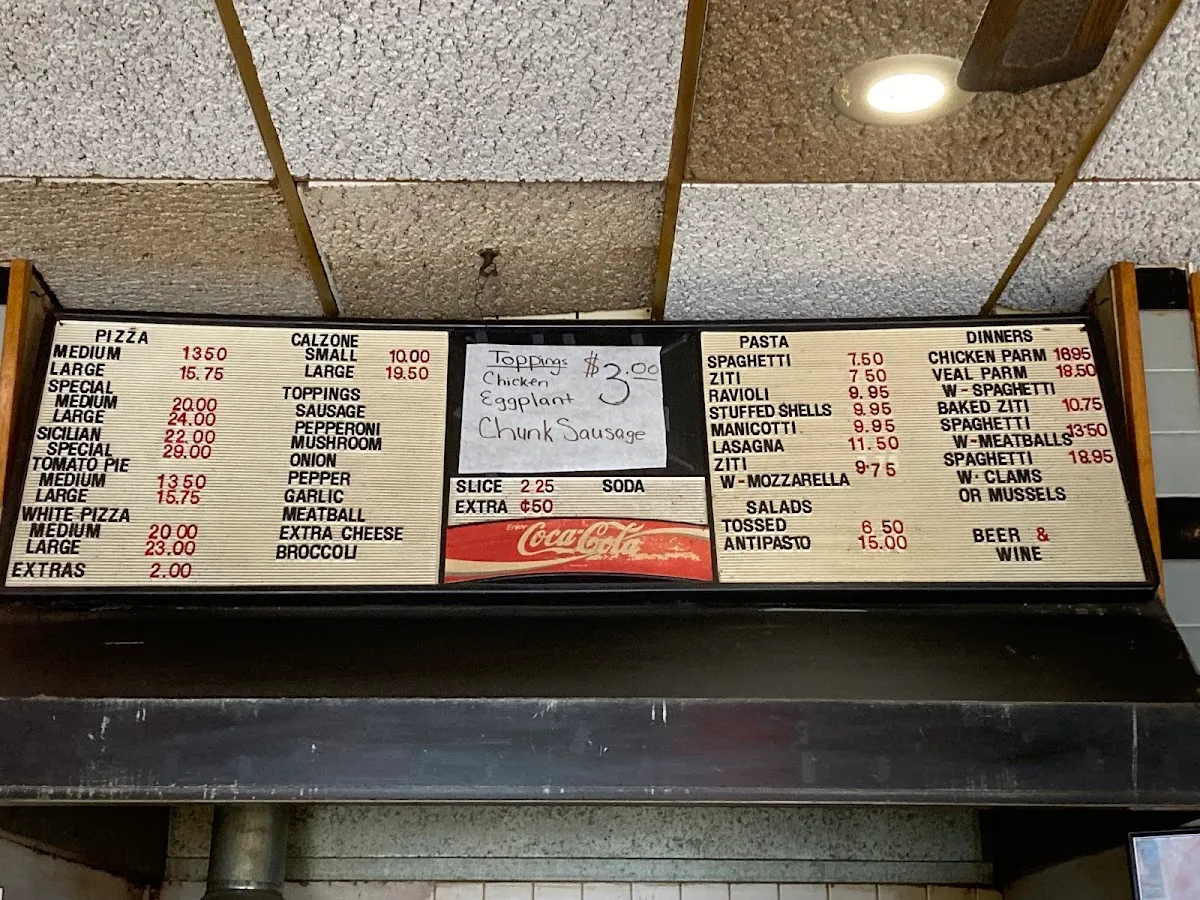 PIZZA
MEDIUM 1350
LARGE 15.75
SPECIAL
MEDIUM 20.00
LARGE 24.00
SICILIAN 22.00
SPECIAL 29.00
TOMATO PIE
MEDIUM 1350
LARGE 15.75
WHITE PIZZA
MEDIUM 20.00
LARGE 23.00
EXTRAS 2.00
CALZONE
SMALL 10.00
LARGE 19.50
TOPPINGS
SAUSAGE
PEPPERONI
MUSHROOM
ONION
PEPPER
GARLIC
MEATBALL
EXTRA CHEESE
BROCCOLI
Toppings $3.00
Chicken
Eggplant
Chunk Sausage
SLICE 2.25 SODA
EXTRA ¢50
Enjoy
Coca-Cola
PASTA
SPAGHETTI 7.50
ZITI 7.50
RAVIOLI 9.95
STUFFED SHELLS 9.95
MANICOTTI 9.95
LASAGNA 11.50
ZITI 9.75
W-MOZZARELLA
SALADS
TOSSED 6.50
ANTIPASTO 15.00
DINNERS
CHICKEN PARM 1695
VEAL PARM 18.50
W-SPAGHETTI
BAKED ZITI 10.75
SPAGHETTI 13.50
W-MEATBALLS
SPAGHETTI 18.95
W. CLAMS
OR MUSSELS
BEER &
WINE